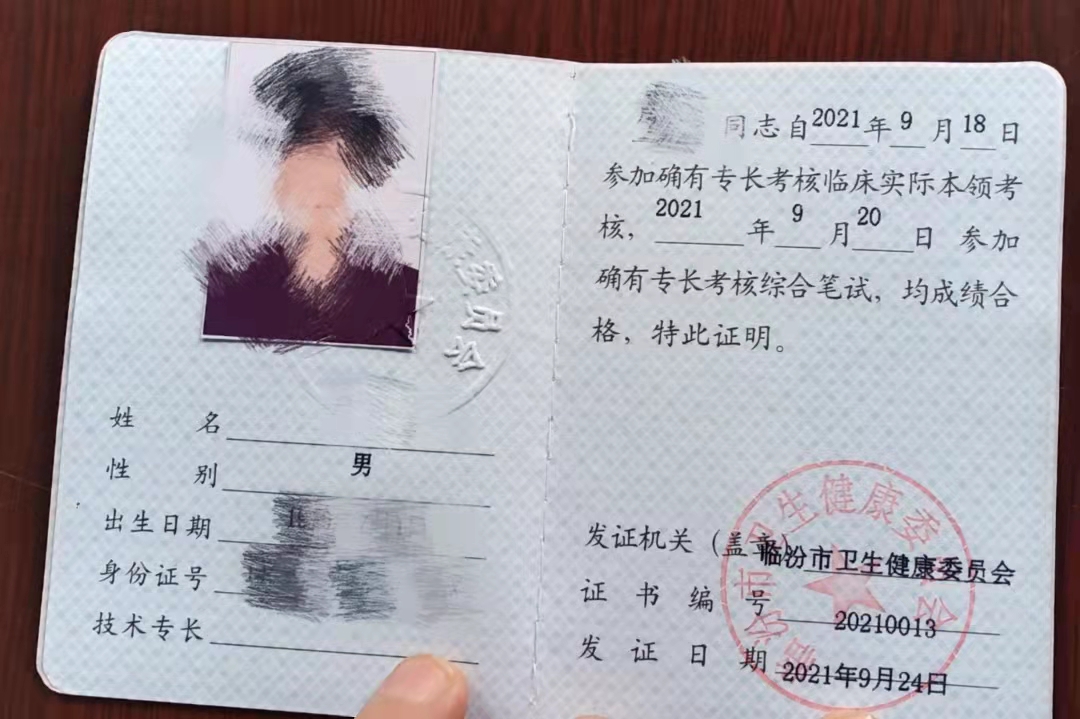 姓 名
性 别 男
出生日期
身份证号
技术专长
同志自2021年9月18日
参加确有专长考核临床实际本领考
核，2021年9月20日 参加
确有专长考核综合笔试，均成绩合
格，特此证明。
发证机关（盖章）临汾市卫生健康委员会
证书编号 20210013
发证日期 2021年9月24日
临汾市卫生健康委员会